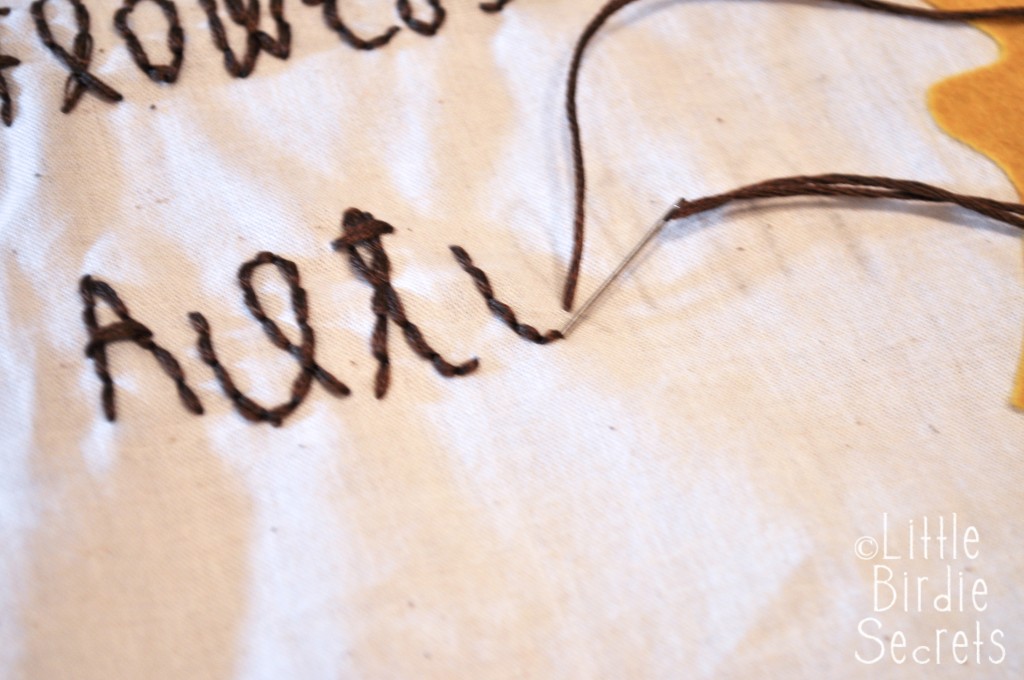 Aut
©Little
Birdie
Secrets